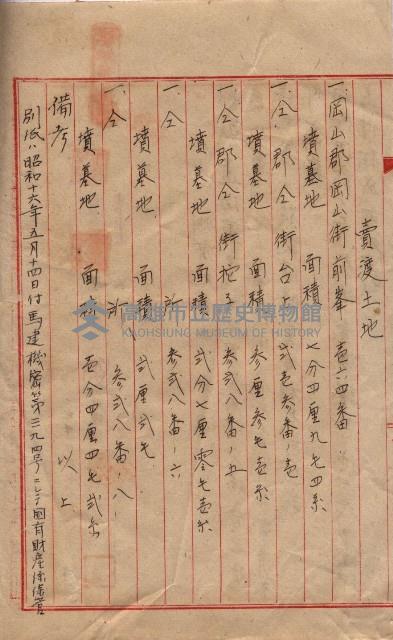 賣渡土地
一、岡山郡岡山街前峯 壱六四番
墳墓地 面積 七分四厘九毛四糸
一、仝郡仝街台上 弍壱参番ノ壱
墳墓地 面積 参厘参毛壱糸
一、仝郡仝街挖子 参弍八番ノ五
墳墓地 面積 弍分七厘零毛壱糸
一、仝 所 参弍八番ノ六
墳墓地 面積 弍厘弍毛
一、仝 所 参弍八番ノ八
墳墓地 面積 壱分四厘四毛弍糸
以上
備考
別紙ハ昭和十六年五月十四日付馬建機密第三九四号ノ二 國有財産
高雄市立歷史博物館
KAOHSIUNG MUSEUM OF HISTORY